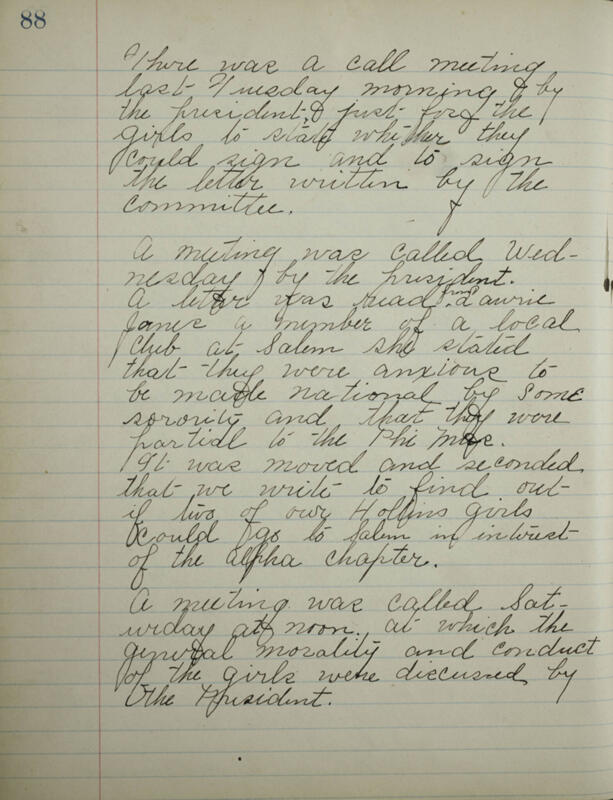 88
There was a call meeting
last Tuesday morning by
the president & just for the
girls to state whether they
could sign and to sign
the letter written by the
committee.
A meeting was called Wed-
nesday by the president.
A letter was read from Lawrie
Jones a member of a local
club at Salem she stated
that they were anxious to
be made national by some
sorority and that they were
partial to the Phi Mu's.
It was moved and seconded
that we write to find out
if two of our Hollins girls
could go to Salem in intrest
of the alpha chapter.
A meeting was called Sat-
urday at noon, at which the
general morality and conduct
of the girls were discussed by
the President.